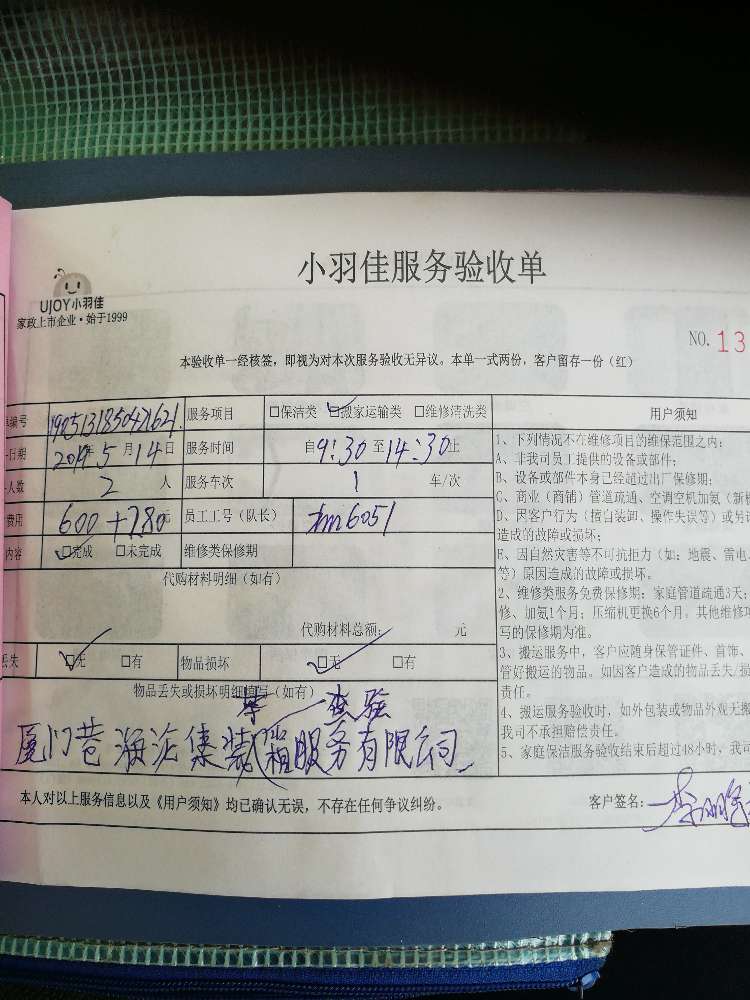 小羽佳服务验收单
UJOY小羽佳
家政上市企业·始于1999
NO. 13
本验收单一经核签，即视为对本次服务验收无异议。本单一式两份，客户留存一份（红）
编号 服务项目 □保洁类 ☑搬家运输类 □维修清洗类
日期 2019年5月14日 服务时间 自9:30至14:30止
人数 2 人 服务车次 1 车/次
费用 600+280元 员工工号（队长） xm6051
内容 ☑完成 □未完成 维修类保修期
代购材料明细（如有）
代购材料总额： 元
丢失 ☑无 □有 物品损坏 ☑无 □有
物品丢失或损坏明细填写（如有）
查验
集装箱服务有限公司
本人对以上服务信息以及《用户须知》均已确认无误，不存在任何争议纠纷。
用户须知
1、下列情况不在维修项目的维保范围之内：
A、非我司员工提供的设备或部件；
B、设备或部件本身已经超过出厂保修期；
C、商业（商铺）管道疏通、空调空机加氨（新
D、因客户行为（擅自装卸、操作失误等）或另
造成的故障或损坏；
E、因自然灾害等不可抗拒力（如：地震、雷电、
等）原因造成的故障或损坏。
2、维修类服务免费保修期：家庭管道疏通3天；
修、加氨1个月；压缩机更换6个月。其他维修项
写的保修期为准。
3、搬运服务中，客户应随身保管证件、首饰、
管好搬运的物品。如因客户造成的物品丢失/损
责任。
4、搬运服务验收时，如外包装或物品外观无
我司不承担赔偿责任。
5、家庭保洁服务验收结束后超过48小时，我司
客户签名：